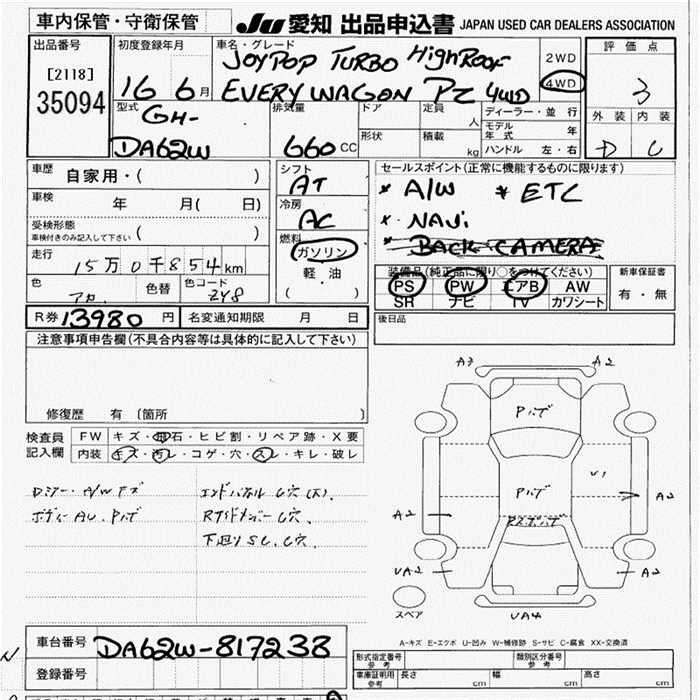 車内保管・守衛保管
JU 愛知 出品申込書 JAPAN USED CAR DEALERS ASSOCIATION
出品番号
[2118]
35094
初度登録年月
16 6月
車名・グレード
JOYPOP TURBO HighRoof
EVERY WAGON PZ 4WD
2WD
4WD
評価点
3
外装 内装
D C
型式
GH-
DA62W
排気量
660 CC
ドア
定員
人
形状
積載
kg
ディーラー・並行
モデル年式 年
ハンドル 左・右
車歴 自家用・( )
車検 年 月( 日)
受検形態
車検付きのみ記入して下さい ( )
走行 15万0千854km
色 アカ 色替 色コード ZY8
シフト
AT
冷房
AC
燃料
ガソリン
軽・油
( )
セールスポイント(正常に機能するものに限ります)
* A/W * ETC
* NAVi
BACK CAMERA
装備品(純正品に限り○をつけてください)
PS PW エアB AW
SR ナビ TV カワシート
新車保証書
有・無
R券 13980 円 名変通知期限 月 日
後日品
注意事項申告欄(不具合内容等は具体的に記入して下さい)
修復歴 有 〔箇所 〕
検査員記入欄
FW キズ・飛石・ヒビ割・リペア跡・X要
内装 キズ・汚レ・コゲ・穴・スレ・キレ・破レ
ボディーAU、Pハゲ
下廻りSC、C穴、
A3 A2
Pハゲ
V1
Pハゲ
A2
A2
UA2 A2
UA4
スペア
A-キズ E-エクボ U-凹み W-補修跡 S-サビ C-腐食 XX-交換済
車台番号 DA62W-817238
登録番号
形式指定番号 参考
類別区分番号 参考
車庫証明用 参考 長さ cm 幅 cm 高さ cm